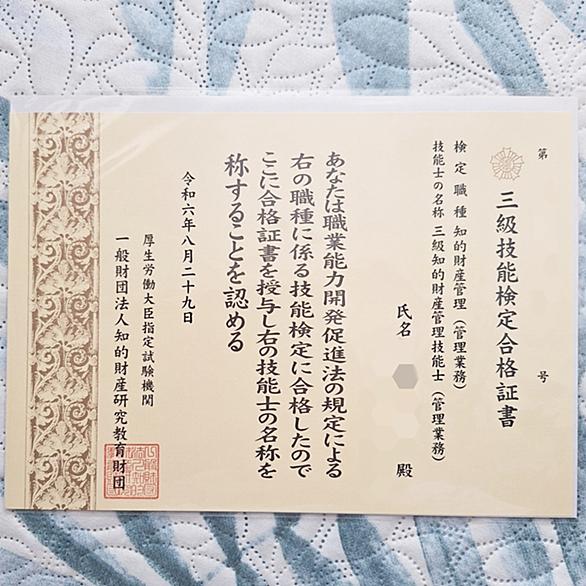 第 号
三級技能検定合格証書
検定職種 知的財産管理(管理業務)
技能士の名称 三級知的財産管理技能士(管理業務)
氏名 殿
あなたは職業能力開発促進法の規定による
右の職種に係る技能検定に合格したので
ここに合格証書を授与し右の技能士の名称を
称することを認める
令和六年八月二十九日
厚生労働大臣指定試験機関
一般財団法人知的財産研究教育財団